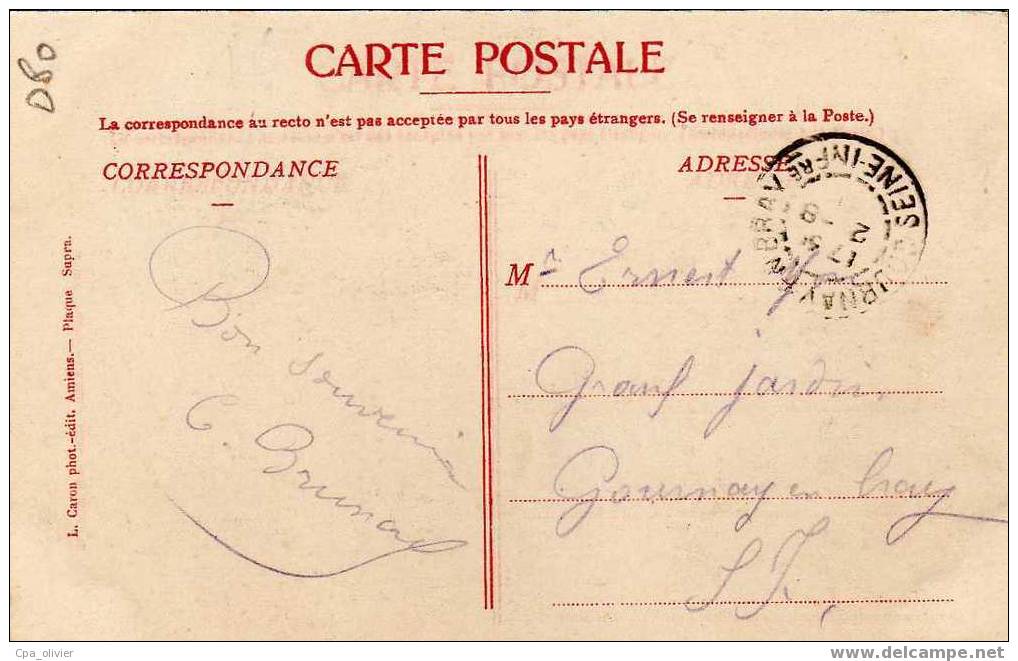 D80
CARTE POSTALE
La correspondance au recto n'est pas acceptée par tous les pays étrangers. (Se renseigner à la Poste.)
CORRESPONDANCE
ADRESSE
L. Caron phot.-édit. Amiens.— Plaque Supra.
Bon souvenir
C. Brunel
GOURNAY-EN-BRAY
SEINE-INFRE
Mr Ernest
Grand jardin,
Gournay en bray
S I,
Cpa_olivier
www.delcampe.net